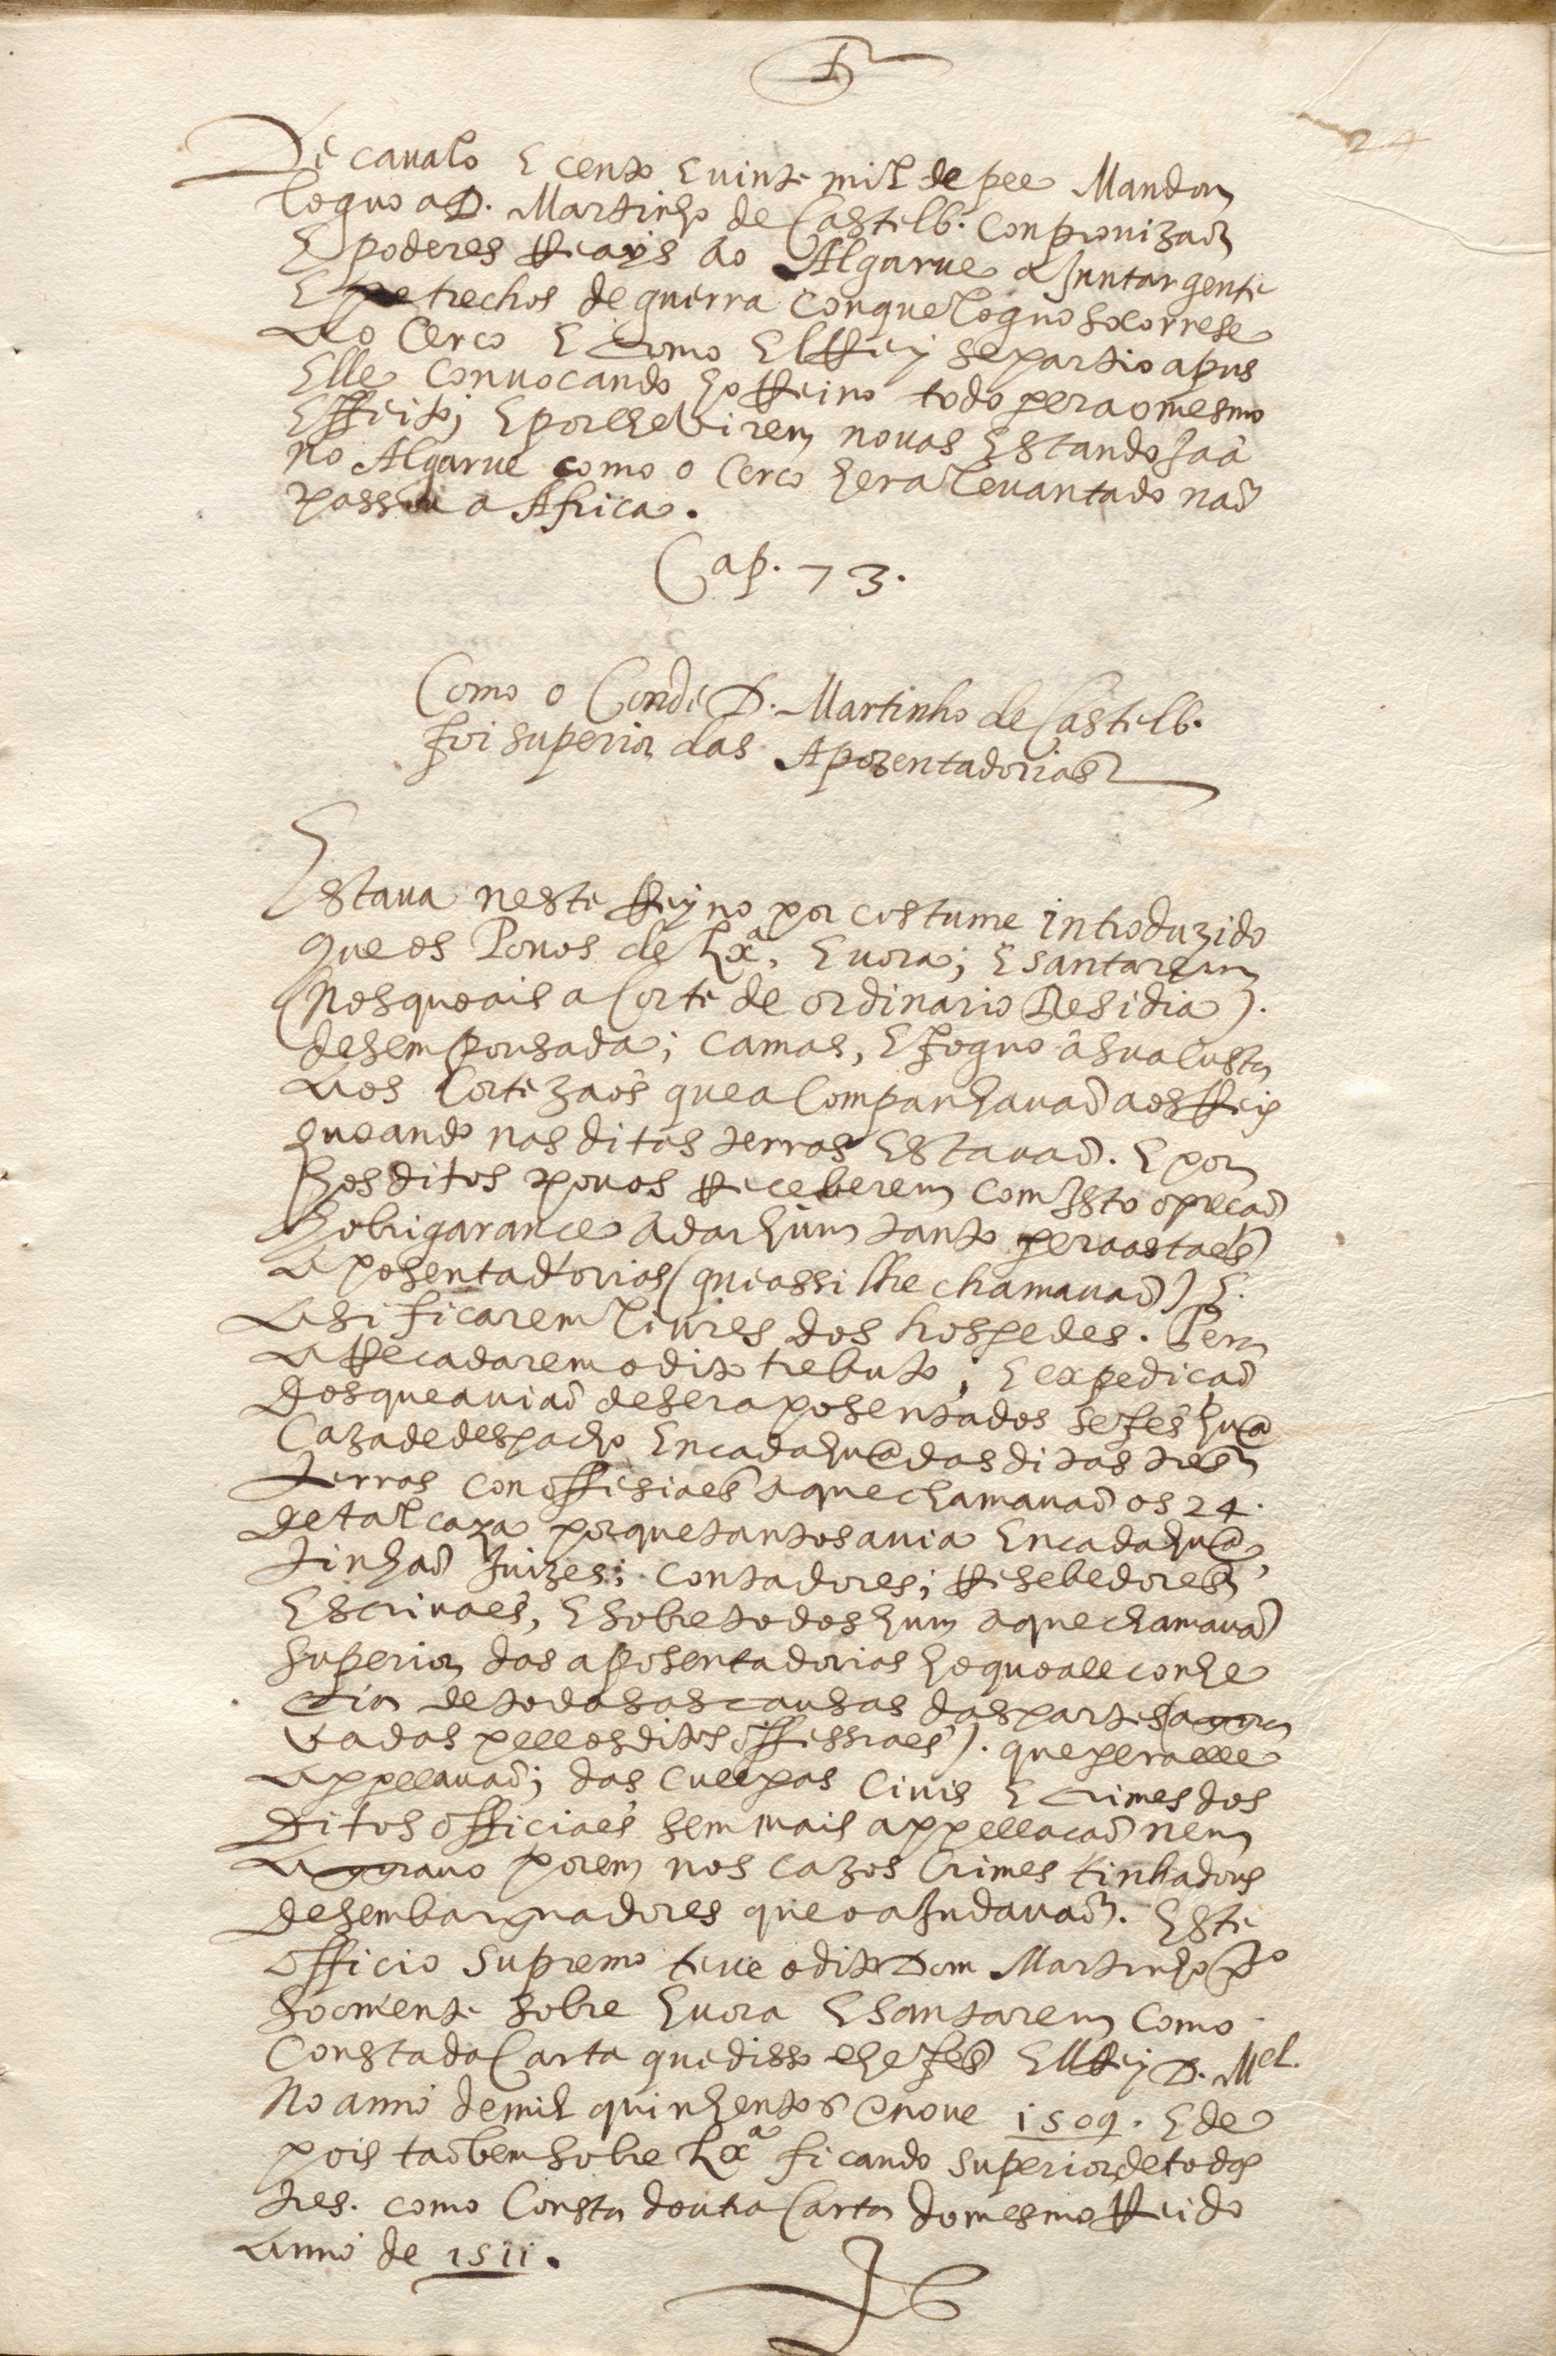 24
De caualo E cento E uinte mil de pee Mandou
loguo a D. Martinho de Castelb. con prouizaõ
E poderes Reays ao Algarue a Juntar gente
E petrechos de guerra con que loguo socorrese
Ao Cerco E como ElRey se partio apus
Elle conuocando ho Reino todo pera o mesmo
Effeito; E por lhe Virem nouas Estando Jaa
no Algarue como o Cerco hera leuantado naõ
passou a Africa.
Cap. 73.
Como o Conde D. Martinho de Castelb.
foi superior das Apozentadorias
Estaua neste Reyno por costume introduzido
que os Pouos de Lxª, Euora; E santarem
(Nos quoais a Corte de ordinario Residia).
desem pousada; camas, E foguo á sua Custa
Aos Cortezaõs que aCompanhauaõ aos Reis
quoando nas ditas terras Estauaõ. E por
hos ditos pouos Receberem com Jsto opreçaõ
Se obrigaraõ a dar hum tanto pera as taes
Aposentadorias (que assi lhe chamauaõ) E
Asi ficarem liures dos hospedes. Pera
ARecadarem o dito trebuto; E expediçaõ
dos que auiaõ de ser aposentados se fes hua
Caza de despacho En cada hua das ditas tres
terras con offisiaes a que chamauaõ os 24.
de tal caza porque tantos auia En cada hua,
tinhaõ Juizes; contadores; Resebedores
Escriuaes, E sobre todos hum a que chamauaõ
superior das aposentadorias ho quoal conhe
cia de todas as causas das partes (agra
uadas pellos ditos offissiaes). que pera elle
Appellauaõ; das Cullpas Ciuis E Crimes dos
Ditos officiaes sem mais appellacaõ nem
Aggrauo porem nos cazos Crimes tinha dous
desembarguadores que o aJudauaõ. Este
officio supremo teue o dito Dom Martinho pro
soomente sobre Euora E santarem como
Consta da Carta que disso lhe fes ElRey D. Mel.
No anno de mil quinhentos e noue 1509. E de
pois taõbem sobre Lxª ficando superior de todas
tres. como Consta doutra Carta do mesmo Rei do
Anno de 1511.